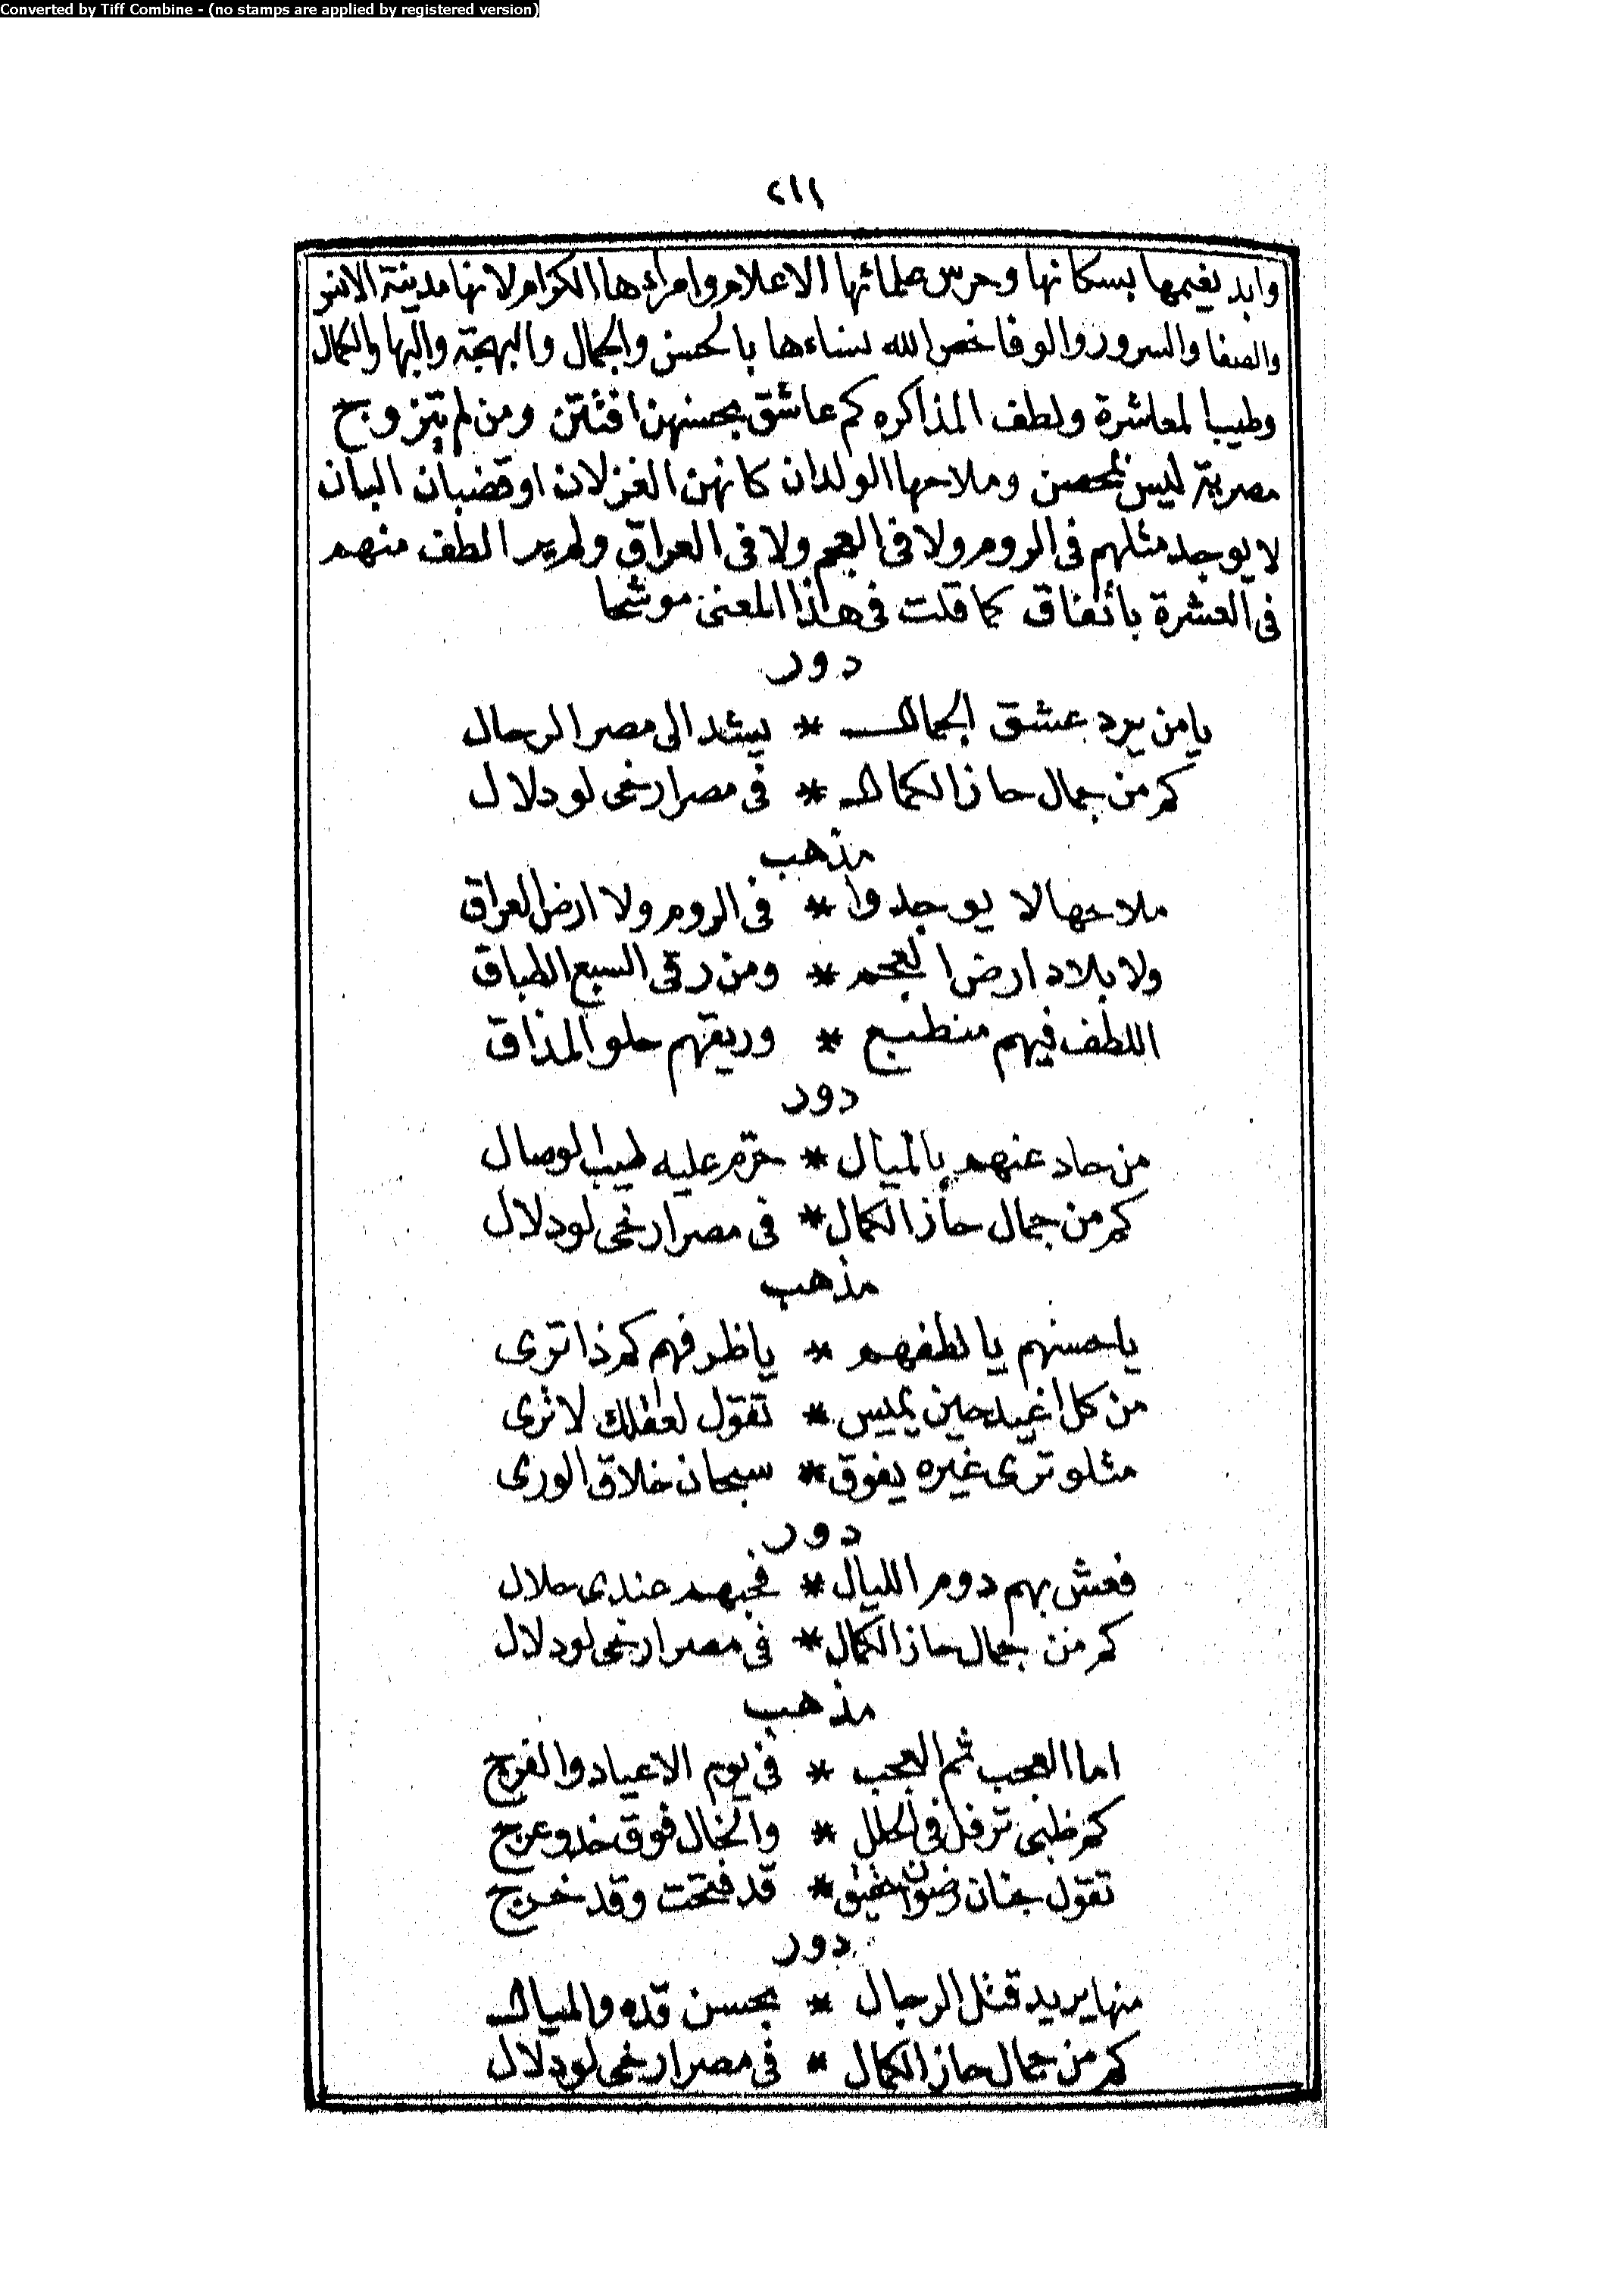 Converted by Tiff Combine - (no stamps are applied by registered version)
٢١١
وابد نعيمها بسكانها وحرس علمائها الاعلام وامراءها الكرام لانها مدينة الانس
والصفا والسرور والوفا خص الله نساءها بالحسن والجمال والبهجة والبها والكمال
وطيب المعاشرة ولطف المذاكره كم عاشق بحسنهن افتتن ومن لم يتزوج
مصرية ليس بمحصن وملاحها الولدان كانهن الغزلان او قضبان البان
لا يوجد مثلهم فى الروم ولا فى العجم ولا فى العراق ولم ير الطف منهم
فى العشرة بأتفاق كما قلت فى هذا المعنى موشحا
دور
يا من يرد عشق الجمال * يشد الى مصر الرحال
كم من جمال حاز الكمال * فى مصر ارخى لو دلال
مذهب
ملاحها لا يوجدوا * فى الروم ولا ارض العراق
ولا بلاد ارض العجم * ومن رقى السبع الطباق
اللطف فيهم منطبع * وريقهم حلو المذاق
دور
من حاد عنهم بالميال * حرّم عليه طيب الوصال
كم من جمال حاز الكمال * فى مصر ارخى لو دلال
مذهب
يا حسنهم يا لطفهم * يا ظرفهم كم ذا ترى
من كل اغيد حين يميس * تقول لعقلك لا ترى
مثلو ترى غيره يفوق * سبحان خلاق الورى
دور
فعش بهم دوم الليال * فحبهم عندى حلال
كم من جمال حاز الكمال * فى مصر ارخى لو دلال
مذهب
اما العجب ثم العجب * فى يوم الاعياد والفرج
كم ظبى ترفل فى الحلل * والخال فوق خدو عرج
تقول جنان رضوان * قد فتحت وقد خرج
دور
منها يريد قتل الرجال * بحسن قده والميال
كم من جمال حاز الكمال * فى مصر ارخى لو دلال